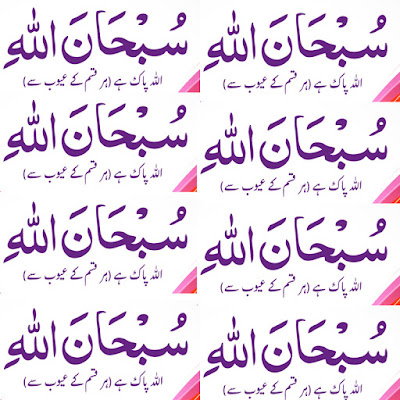 سُبْحَانَ اللهِ سُبْحَانَ اللهِ
اللہ پاک ہے (ہر قسم کے عیوب سے) اللہ پاک ہے (ہر قسم کے عیوب سے)
سُبْحَانَ اللهِ سُبْحَانَ اللهِ
اللہ پاک ہے (ہر قسم کے عیوب سے) اللہ پاک ہے (ہر قسم کے عیوب سے)
سُبْحَانَ اللهِ سُبْحَانَ اللهِ
اللہ پاک ہے (ہر قسم کے عیوب سے) اللہ پاک ہے (ہر قسم کے عیوب سے)
سُبْحَانَ اللهِ سُبْحَانَ اللهِ
اللہ پاک ہے (ہر قسم کے عیوب سے) اللہ پاک ہے (ہر قسم کے عیوب سے)